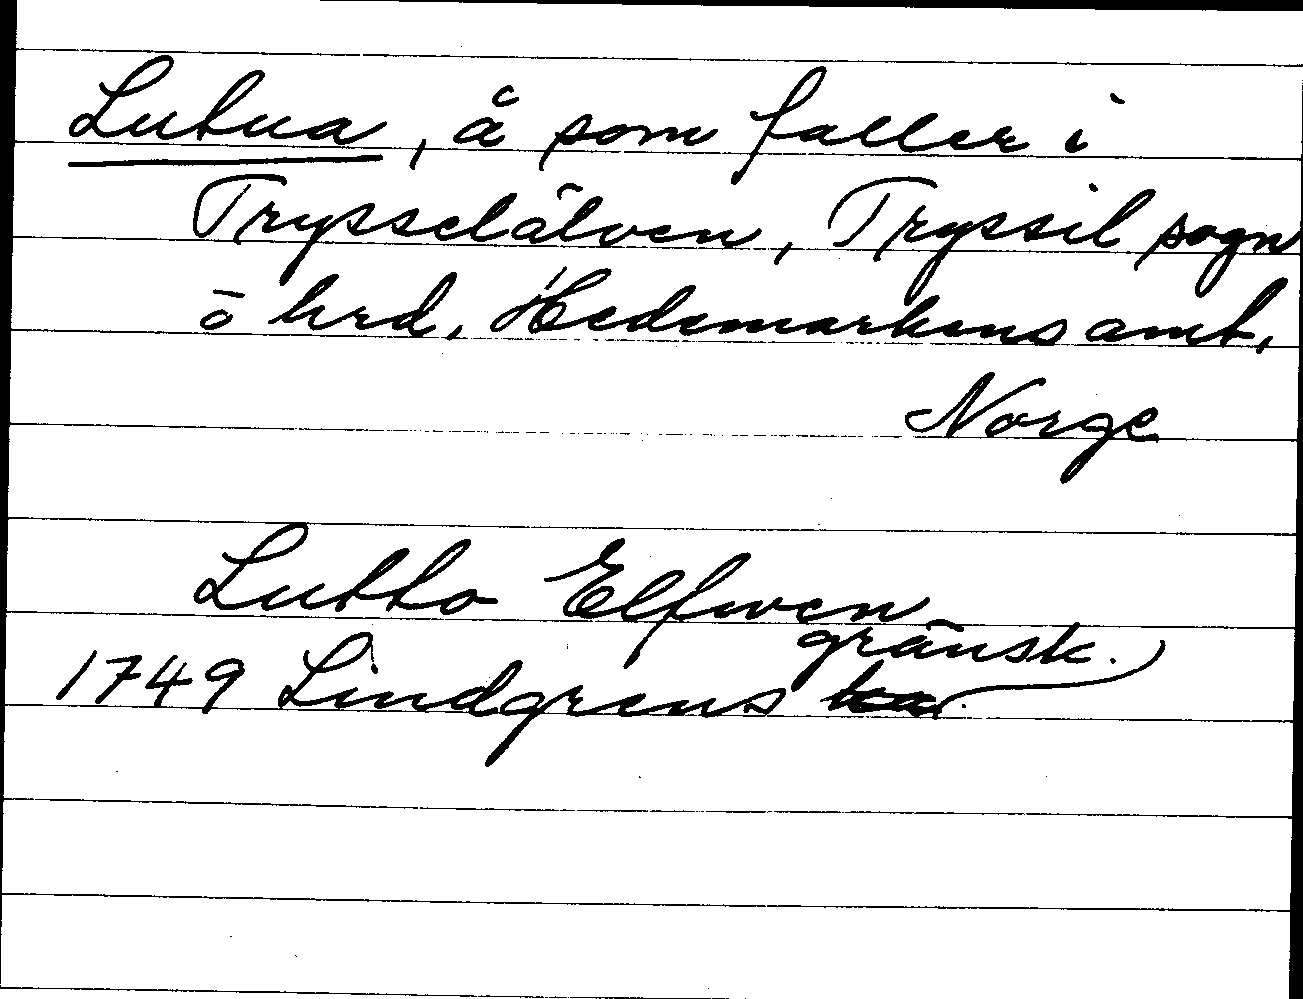 Lutua, å som faller i
Trysselälven, Tryssil sogn
ō hrd. Hedemarkens amt,
Norge
Lutto Elfwen
gränsk.
1749 Lindgrens